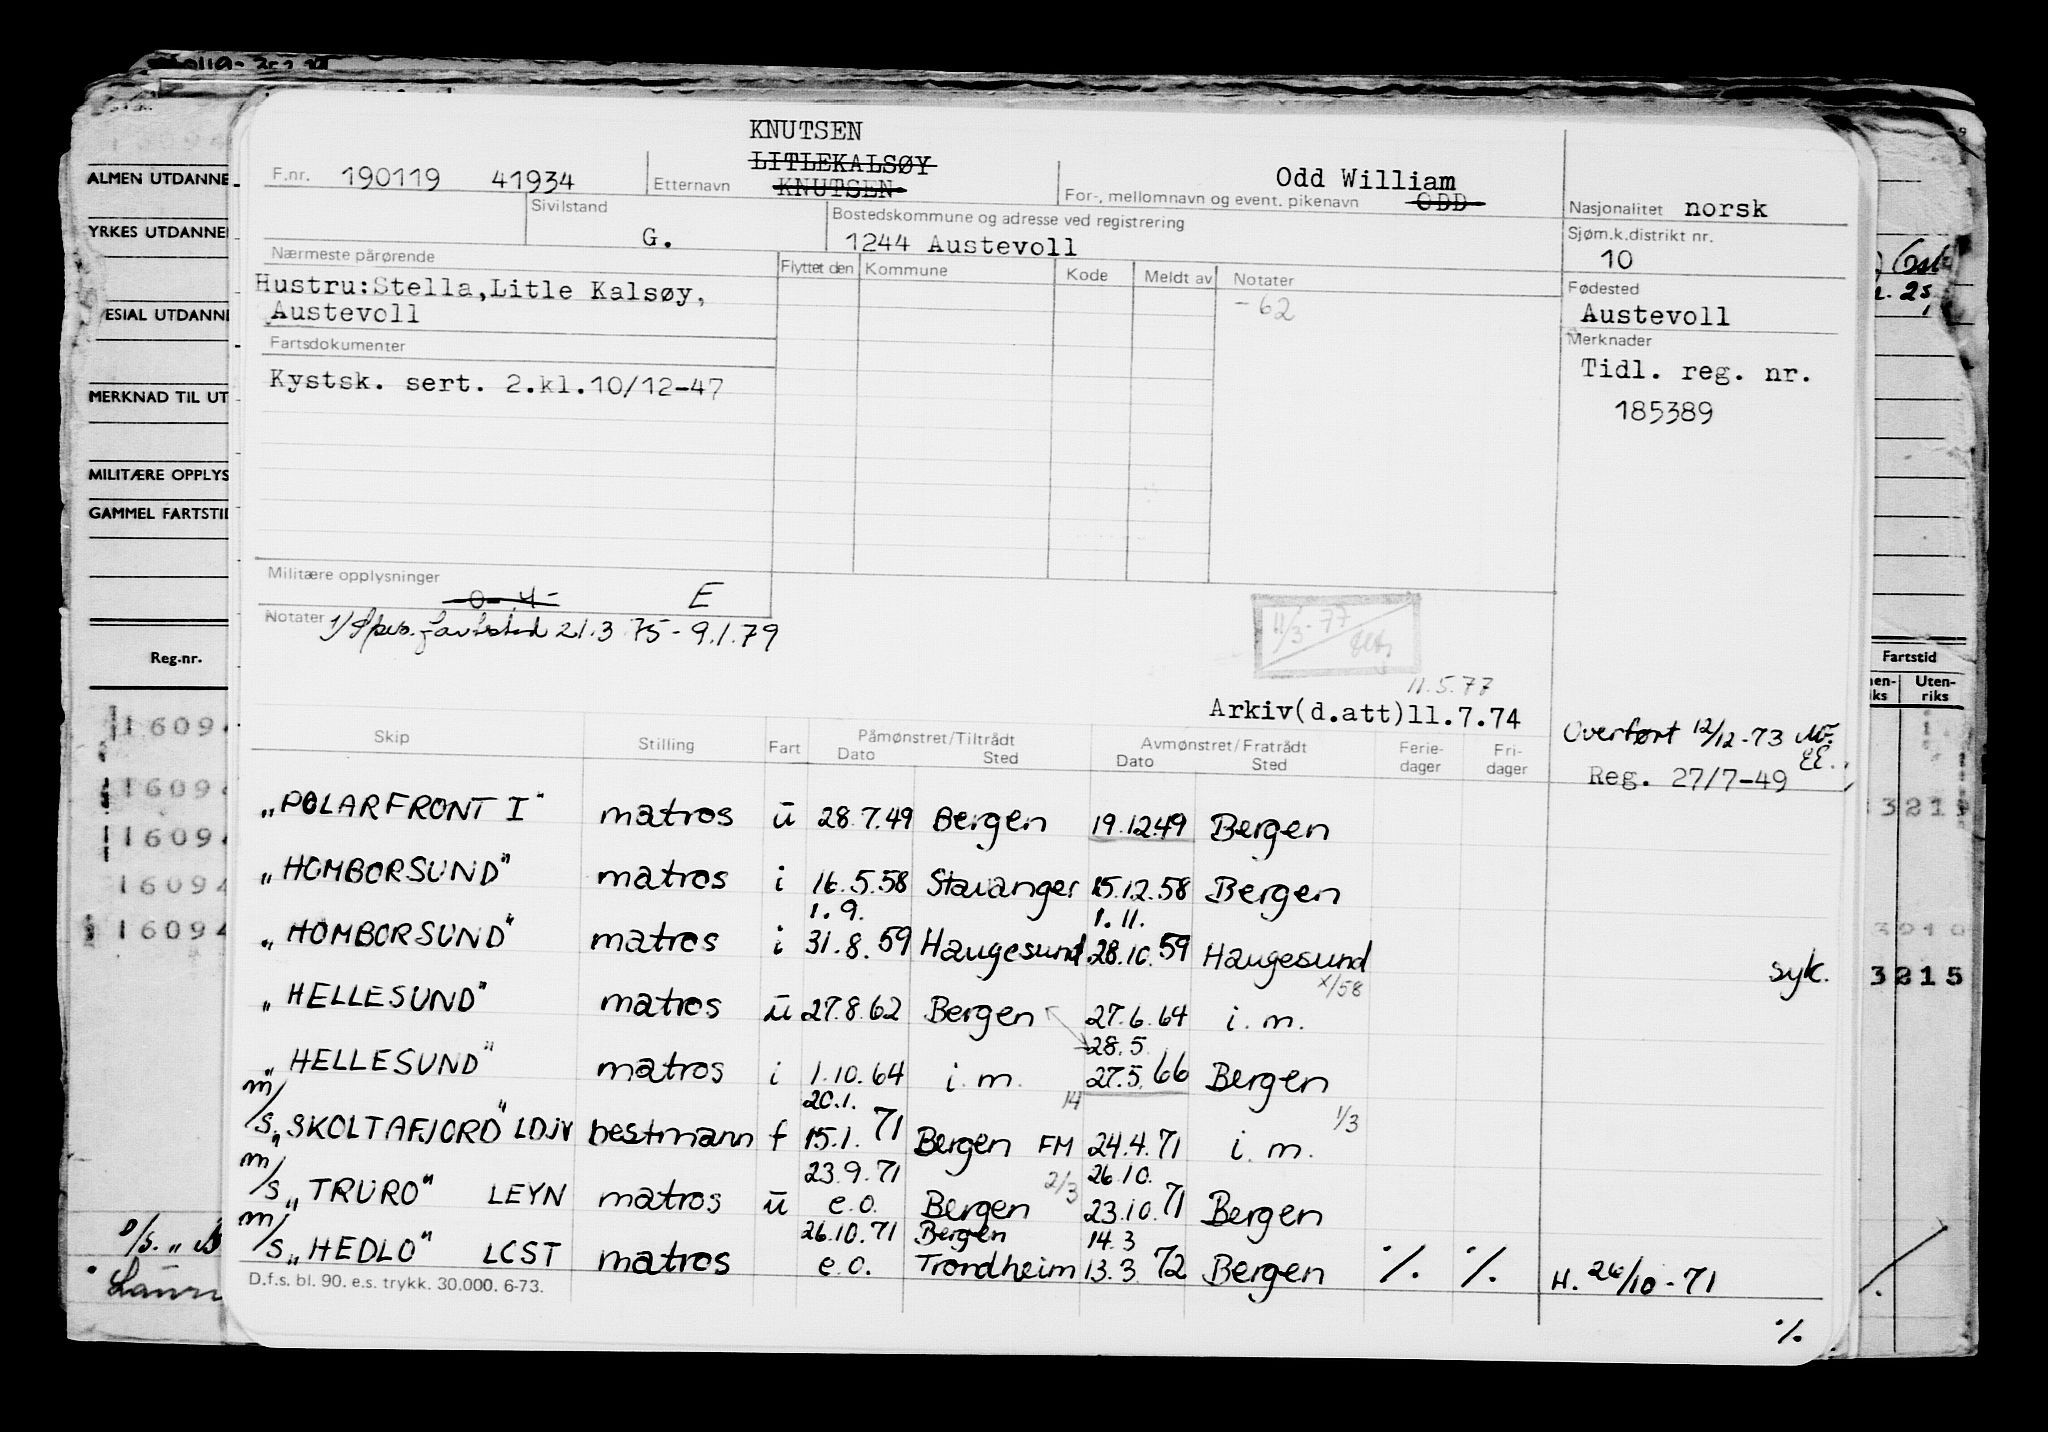 KNUTSEN
F.nr. 190119 41934 Etternavn LITLEKALSØY KNUTSEN For-, mellomnavn og event. pikenavn Odd William ODD Nasjonalitet norsk
Sivilstand G. Bostedskommune og adresse ved registrering 1244 Austevoll Sjøm.k.distrikt nr. 10
Nærmeste pårørende Flyttet den Kommune Kode Meldt av Notater -62 Fødested Austevoll
Hustru:Stella,Litle Kalsøy,
Austevoll
Fartsdokumenter
Kystsk. sert. 2.kl.10/12-47
Merknader
Tidl. reg. nr.
185389
Militære opplysninger E
Notater 1/ 21.3 75 - 9.1.79
11/3-77
11.5.77
Arkiv(d.att)11.7.74
Overført 12/12-73
Reg. 27/7-49
Skip Stilling Fart Påmønstret/Tiltrådt Dato Sted Avmønstret/Fratrådt Dato Sted Ferie-dager Fri-dager
„POLARFRONT I" matros ū 28.7.49 Bergen 19.12.49 Bergen
„HOMBORSUND" matros i 16.5.58 Stavanger 15.12.58 Bergen
1.9. 1.11.
„HOMBORSUND" matros i 31.8.59 Haugesund 28.10.59 Haugesund syk.
x/58
„HELLESUND" matros ū 27.8.62 Bergen 27.6.64 i.m.
28.5.
„HELLESUND" matros i 1.10.64 i.m. 27.5.66 Bergen
20.1. 14 1/3
m/s „SKOLTAFJORD" LDJV bestmann f 15.1.71 Bergen FM 24.4.71 i.m.
23.9.71 2/3 26.10.
m/s „TRURO" LEYN matros ū e.o. Bergen 23.10.71 Bergen
26.10.71 Bergen 14.3
m/s „HEDLO" LCST matros e.o. Trondheim 13.3.72 Bergen % % H. 26/10-71
D.f.s. bl. 90. e.s. trykk. 30.000. 6-73.
%
ALMEN UTDANNE
YRKES UTDANNE
ESIAL UTDANNE
MERKNAD TIL UT
MILITÆRE OPPLYS
GAMMEL FARTSTID
Reg.-nr.
16094
16094
16094
16094
16094
Fartstid
Uten-riks
3210
3215